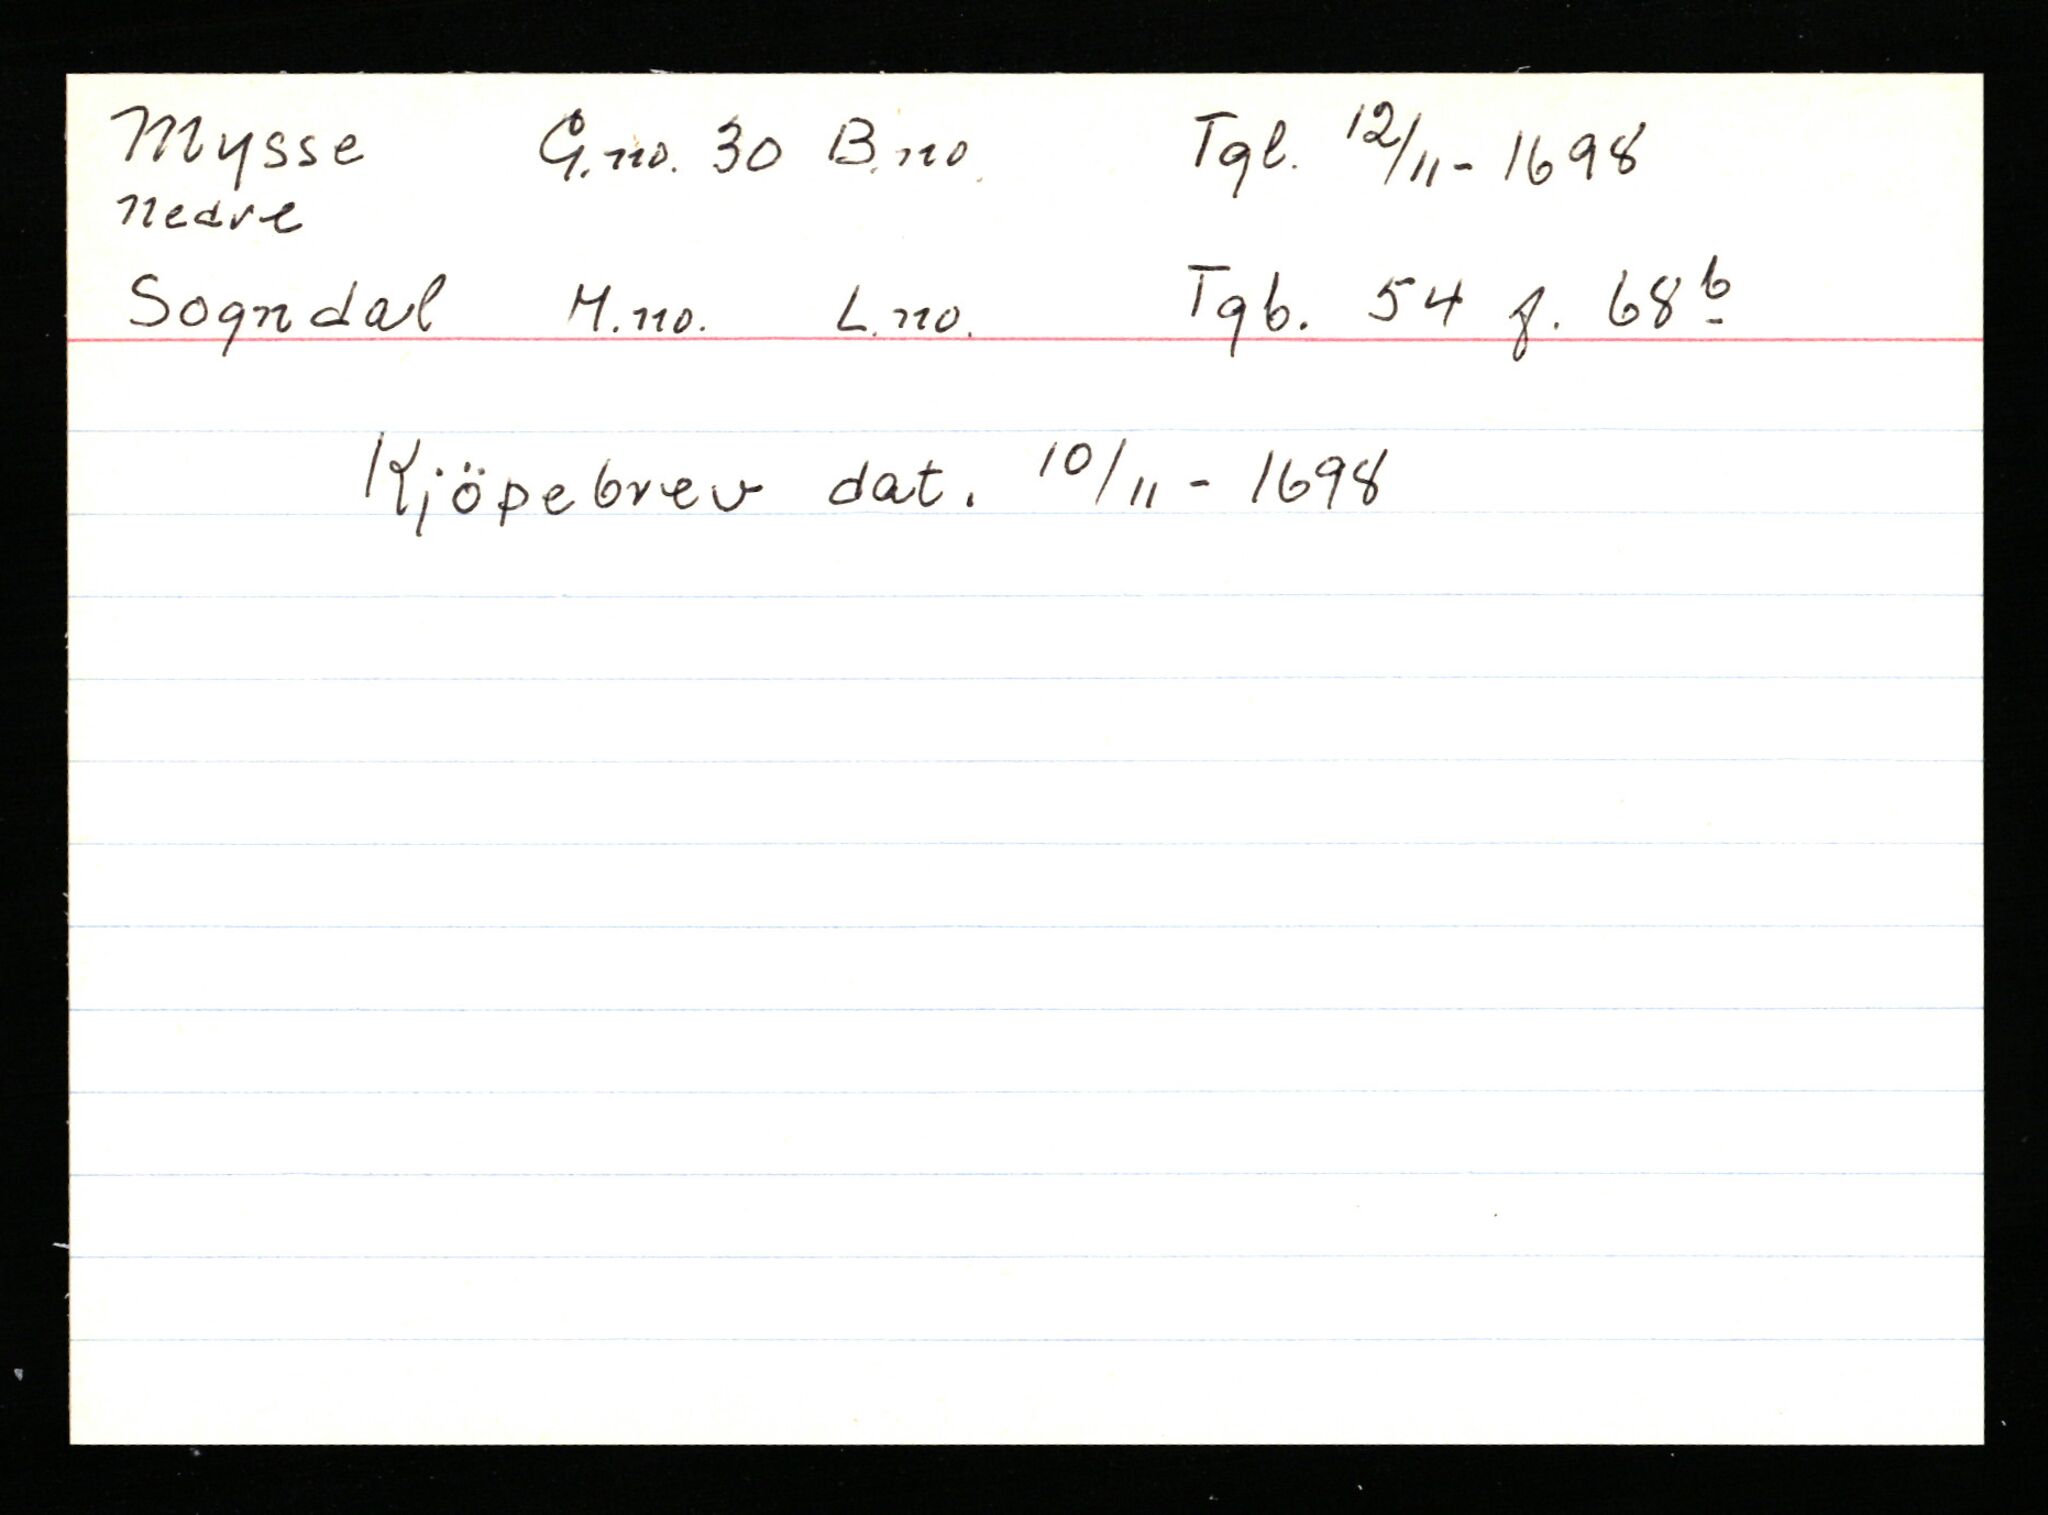 Mysse G.no. 30 B.no. Tgl. 12/11 - 1698
nedre
Sogndal M.no. L.no. Tgb. 54 f. 68b
Kjöpebrev dat. 10/11 - 1698